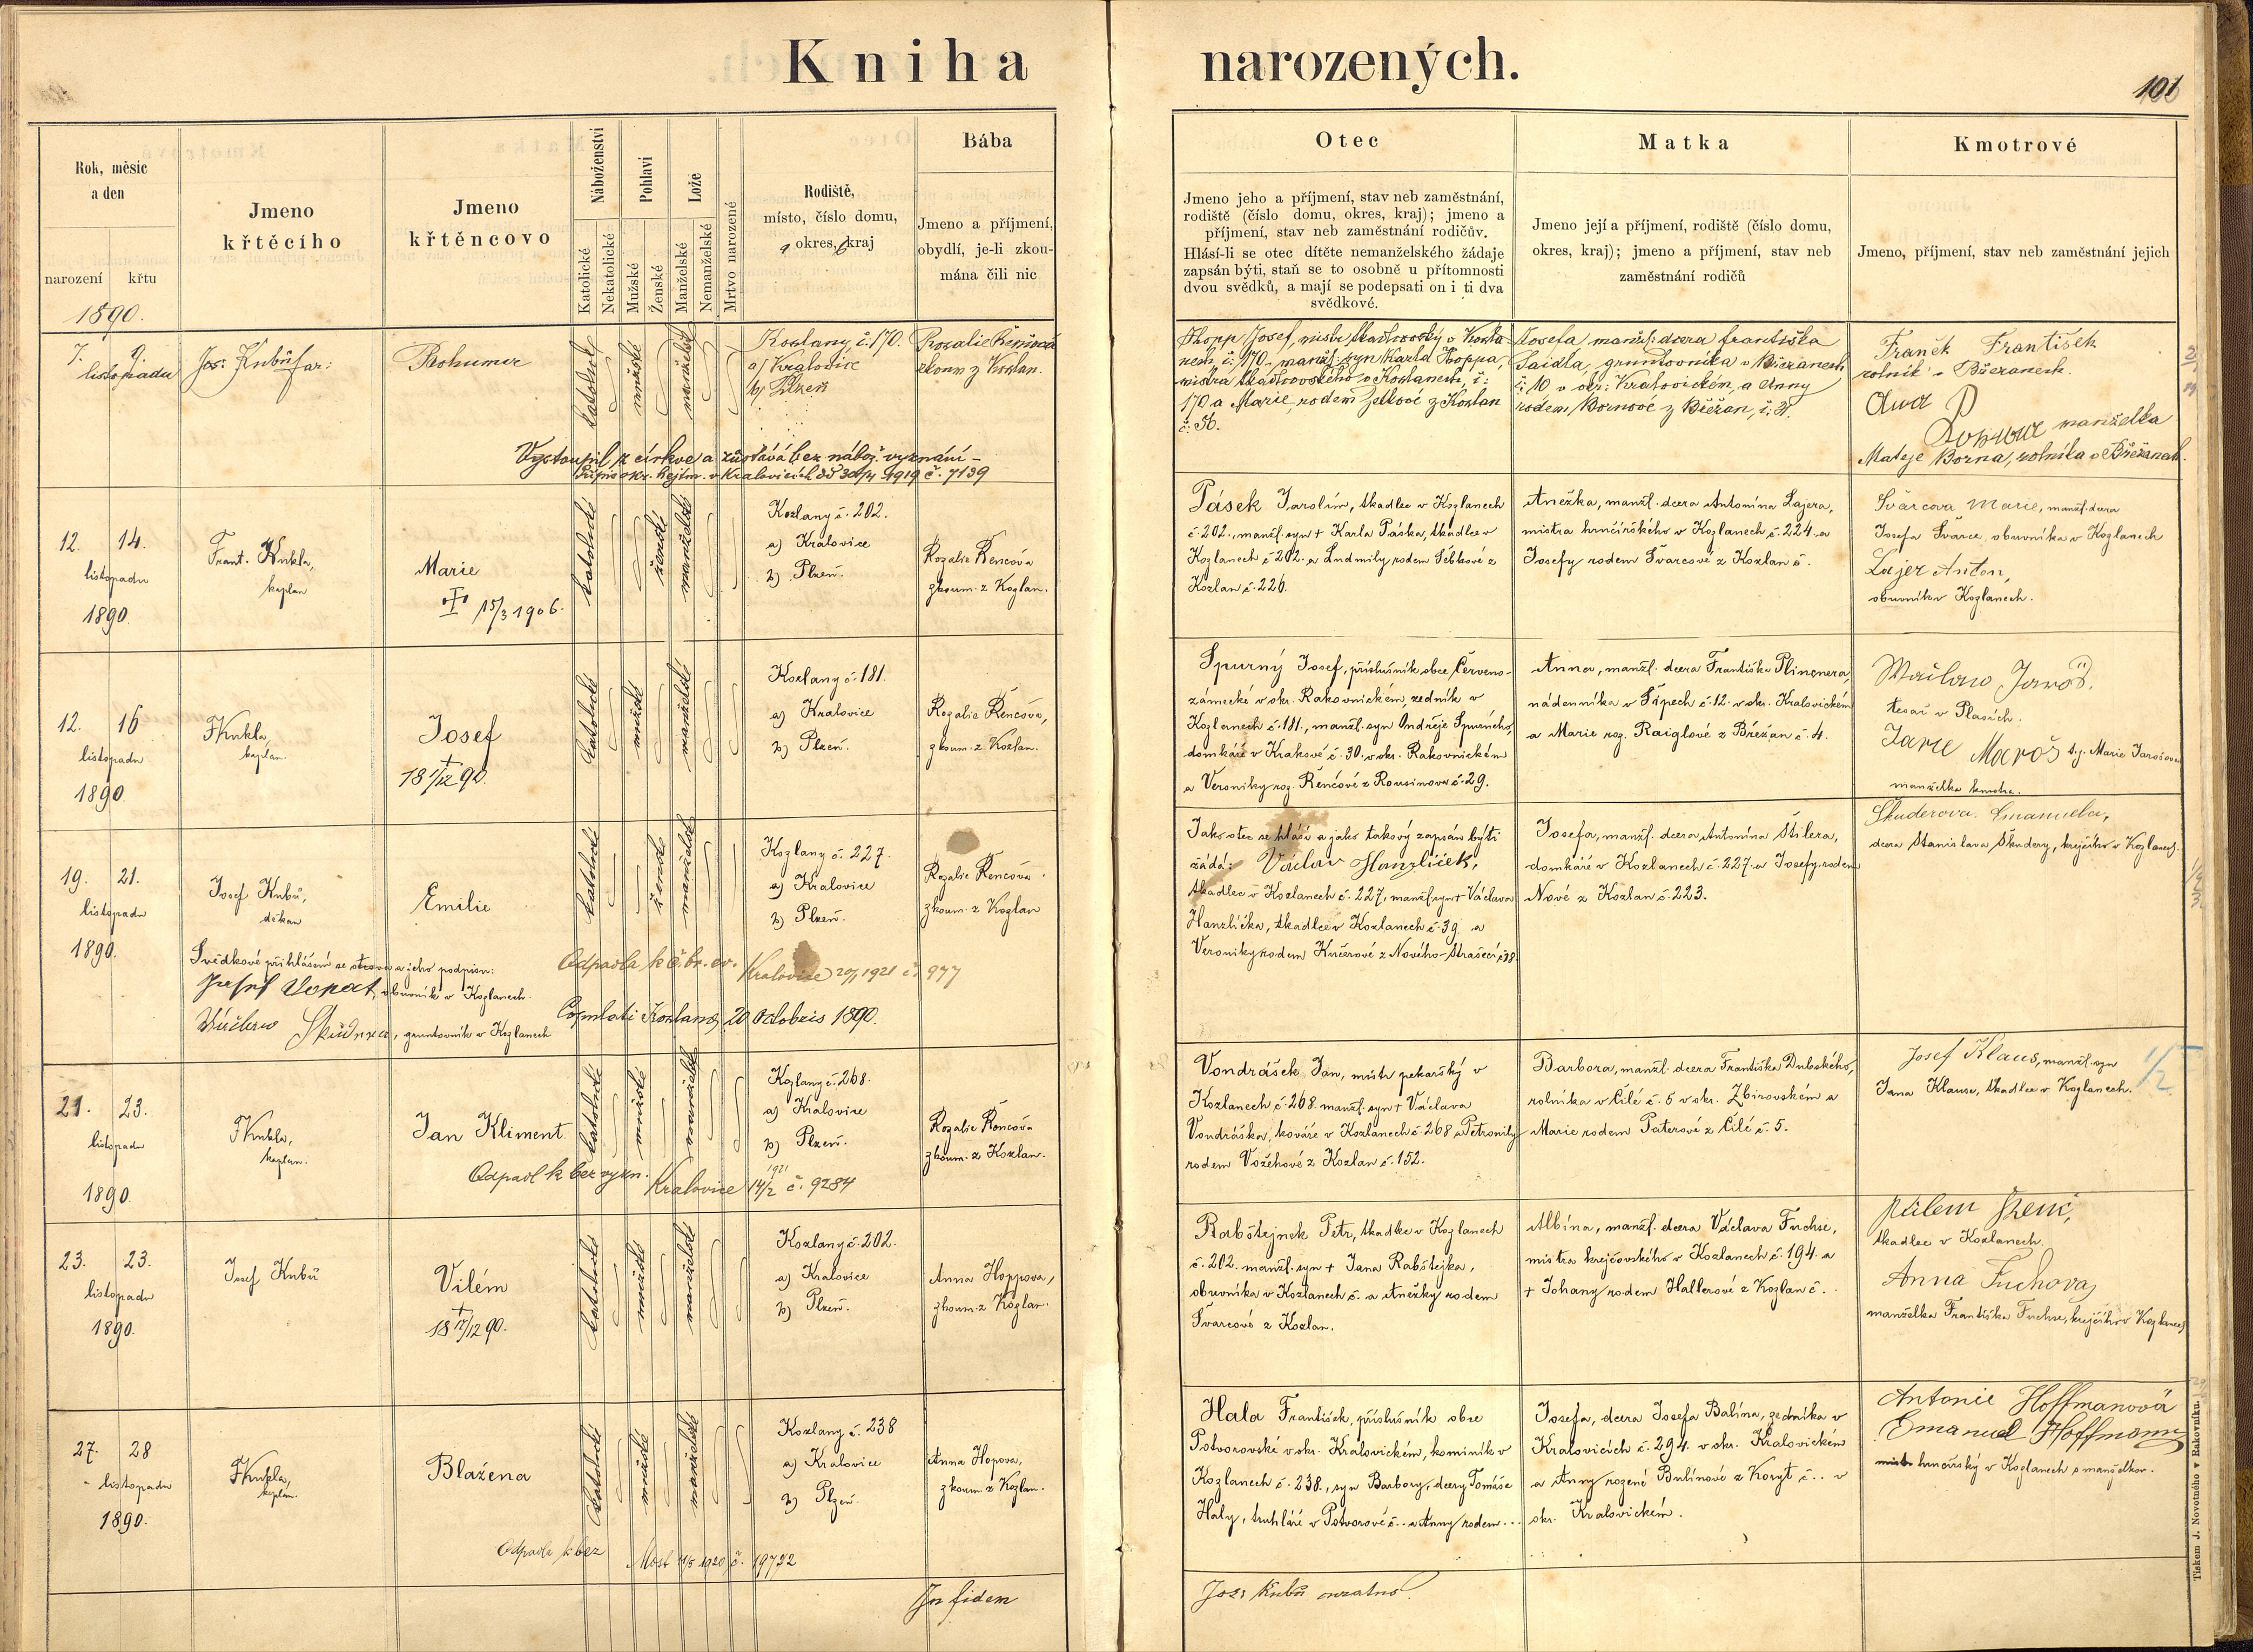 Kniha narozených.
101
Rok, měsíc
a den
narození
křtu
Jmeno
křtěcího
Jmeno
křtěncovo
Náboženství
Katolické
Nekatolické
Pohlaví
Mužské
Ženské
Lože
Manželské
Nemanželské
Mrtvo narozené
Rodiště,
místo, číslo domu,
okres, kraj
Bába
Jmeno a příjmení,
obydlí, je-li zkou-
mána čili nic
Otec
Jmeno jeho a příjmení, stav neb zaměstnání,
rodiště (číslo domu, okres, kraj); jmeno a
příjmení, stav neb zaměstnání rodičův.
Hlásí-li se otec dítěte nemanželského žádaje
zapsán býti, staň se to osobně u přítomnosti
dvou svědků, a mají se podepsati on i ti dva
svědkové.
Matka
Jmeno její a příjmení, rodiště (číslo domu,
okres, kraj); jmeno a příjmení, stav neb
zaměstnání rodičů
Kmotrové
Jmeno, příjmení, stav neb zaměstnání jejich
1890.
7. 9.
listopadu
Jos. Kubů far:
Bohumír
katolické
mužské
manželské
Kozlany, č. 170.
a) Kralovice
b) Plzeň
Rozalie Řenčová
zkoum z Kozlan.
Hopp Josef, mistr tkadlcovský v Kozla-
nech, č: 170., manž: syn Karla Hoppa,
mistra tkadlcovského v Kozlanech, č:
170 a Marie, rodem Jelkové z Kozlan
č: 56.
Josefa manž: dcera františka
Saidla, gruntovníka v Břežanech
č: 10 v okr: Kralovickém, a Anny
rodem Bornové z Břežan, č: 31.
Franěk František
rolník v Břežanech.
manželka
Mateje Borna, rolníka v Břežanech.
Vystoupil z církve a zůstává bez nábož. vyznání -
Přípis okr. hejtm. v Kralovicích dto 30/4 1919 č. 7139
12. 14.
listopadu
1890.
Frant. Kukla,
kaplan
Marie
15/3 1906.
katolické
ženské
manželské
Kozlany č. 202.
a) Kralovice
b) Plzeň.
Rozalie Řenčova
zkoum. z Kozlan.
Pásek Jarolím, tkadlec v Kozlanech
č. 202., manžl. syn + Karla Páska, tkadlce v
Kozlanech č 202. a Ludmily rodem Šebkové z
Kozlan č. 226.
Anežka, manžl. dcera Antonína Lajera,
mistra hrnčířského v Kozlanech č. 224. a
Josefy rodem Švarcové z Kozlan č.
Švarcova Marie, manžl. dcera
Josefa Švarce, obuvníka v Kozlanech
Lajer Anton,
obuvník v Kozlanech.
12. 16
listopadu
1890.
F Kukla,
kaplan.
Josef
+
18 1/12 90.
katolické
mužské
manželské
Kozlany č. 181.
a) Kralovice
b) Plzeň.
Rozalie Řenčova,
zkoum. z Kozlan.
Spurný Josef, příslušník obce Červeno-
zámecké v okr. Rakovnickém, zedník v
Kozlanech č. 181., manžl. syn Ondřeje Spurného,
domkáře v Krakově č. 30. v okr. Rakovnickém
a Veroniky roz. Řenčové z Rousinova č. 29.
Anna, manžl. dcera Františka Plincnera,
nádenníka v Šípech č. 12. v okr. Kralovickém
a Marie roz. Raiglové z Břežan č. 4.
tesař v Plasích.
t.j. Marie Jarošova
manželka kmotra.
19. 21.
listopadu
1890.
Josef Kubů,
děkan
Emilie
katolické
ženské
manželské
Kozlany č. 227.
a) Kralovice
b) Plzeň.
Rozalie Řenčova
zkoum. z Kozlan
Jako otec se hlásí a jako takový zapsán býti
žádá: Václav Hanzlíček,
tkadlec v Kozlanech č. 227, manžl. syn + Václava
Hanzlíčka, tkadlce v Kozlanech č. 39. a
Veroniky rodem Kučerové z Nového-Strašecí č 38
Josefa, manžl. dcera Antonína Štilera,
domkáře v Kozlanech č. 227. a Josefy rodem
Nové z Kozlan č. 223.
Škuderova Emanuela,
dcera Stanislava Škudery, krejčího v Kozlanech.
Svědkové přihlášení se otcova a jeho podpisu:
obuvník v Kozlanech.
Václav Škudera, gruntovník v Kozlanech
Odpadla k č. br. ev. Kralovice 20/1 1921 č. 977
Copulati Kozlany 20 Octobris 1890.
21. 23.
listopadu
1890.
F Kukla,
kaplan.
Jan Kliment
katolické
mužské
manželské
Kozlany č. 268.
a) Kralovice
b) Plzeň.
Rozalie Řenčova
zkoum. z Kozlan.
Vondrášek Jan, mistr pekařský v
Kozlanech č. 268. manžl. syn + Václava
Vondráška, kováře v Kozlanech č. 268 a Petronily
rodem Vožehové z Kozlan č. 152.
Barbora, manžl. dcera Františka Dubského,
rolníka v Čilé č. 5 v okr. Zbirovském a
Marie rodem Paterové z Čilé č. 5.
Josef Klaus, manžl. syn
Jana Klause, tkadlce v Kozlanech.
1/2
Odpadl k bez vyzn. Kralovice 14/2 1921 č. 9284
23. 23.
listopadu
1890.
Josef Kubů
Vilém
+
18 17/12 90.
katolické
mužské
manželské
Kozlany č. 202.
a) Kralovice
b) Plzeň.
Anna Hoppova,
zkoum. z Kozlan.
Rabštejnek Petr, tkadlec v Kozlanech
č. 202. manžl. syn + Jana Rabštejka,
obuvníka v Kozlanech č. a Anežky rodem
Švarcové z Kozlan.
Albína, manžl. dcera Václava Fuchse,
mistra krejčovského v Kozlanech č. 194. a
+ Johany rodem Hallerové z Kozlan č.
tkadlec v Kozlanech.
Anna Fuchova,
manželka Františka Fuchse, krejčího v Kozlanech
27. 28
listopadu
1890.
F Kukla,
kaplan.
Blažena
katolické
mužské
manželské
Kozlany č. 238
a) Kralovice
b) Plzeň.
Anna Hopova,
zkoum. z Kozlan.
Hala František, příslušník obce
Potvorovské v okr. Kralovickém, kominík v
Kozlanech č. 238., syn Barbory, dcery Tomáše
Haly, truhláře v Potvorově č... a Anny rodem...
Josefa, dcera Josefa Balína, zedníka v
Kralovicích č. 294. v okr. Kralovickém
a Anny rozené Bulínové z Koryt č... v
okr. Kralovickém.
Antonie Hoffmanová
Emanuel Hoffmann
mistr hrnčířský v Kozlanech s manželkou.
Odpadla k bez Most 11/5 1920 č. 19722
In fidem
Jos. Kubů curatus.
Tiskem J. Novotného v Rakovníku.